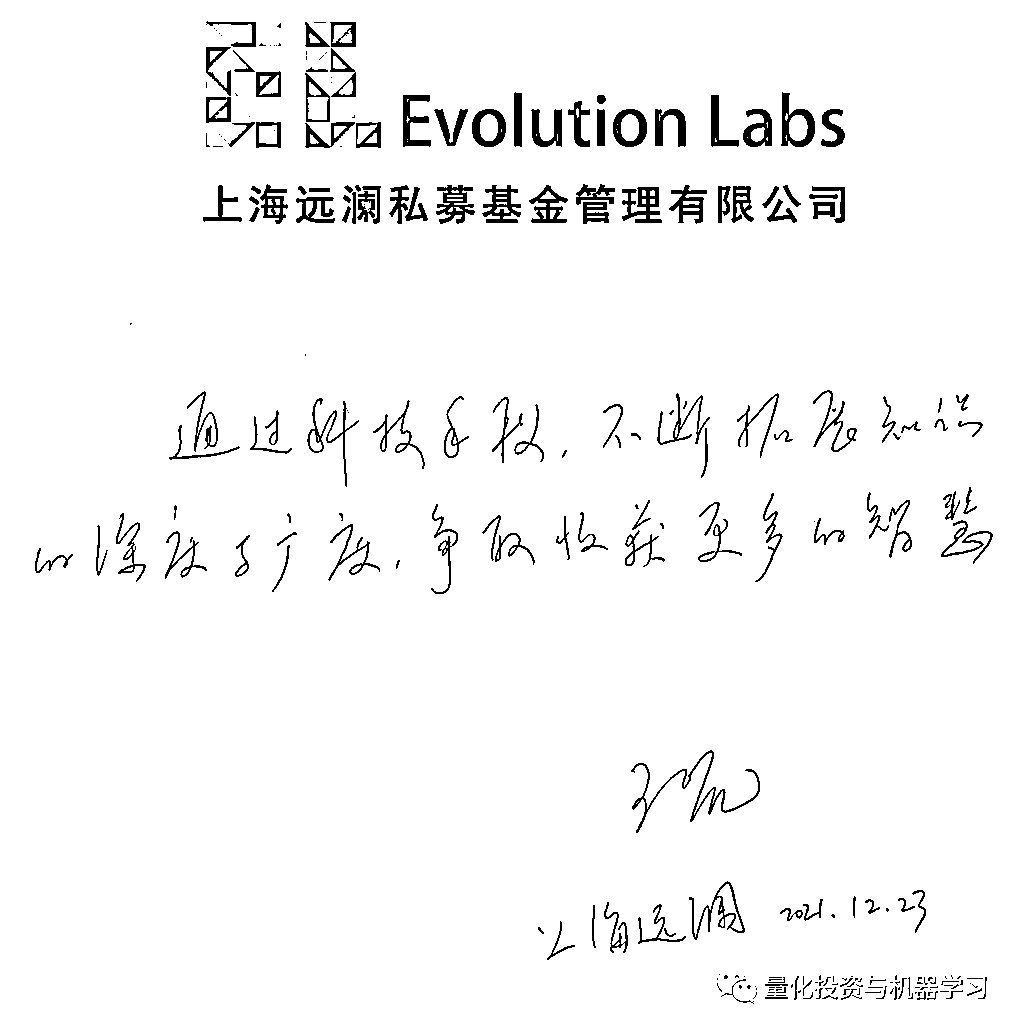 Evolution Labs
上海远澜私募基金管理有限公司
通过科技手段，不断拓展知识
的深度与广度，争取收获更多的智慧
上海远澜 2021.12.23
量化投资与机器学习